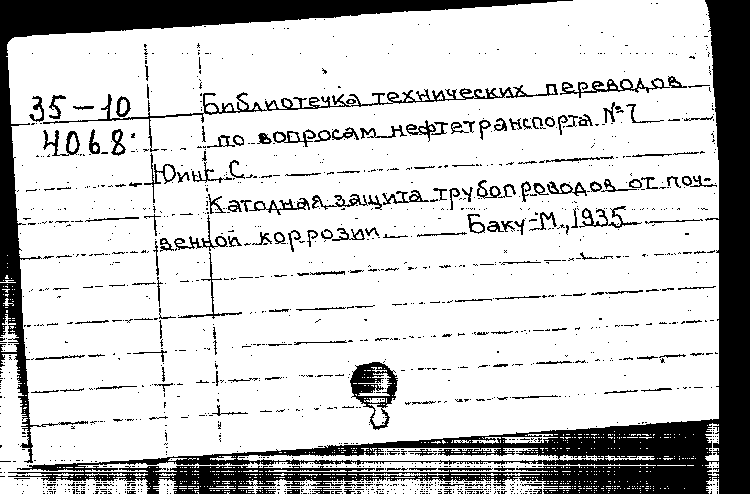 35-10 Библиотечка технических переводов
4068 по вопросам нефтетранспорта №7
Юинг, С.
Катодная защита трубопроводов от поч-
венной коррозии. Баку-М., 1935